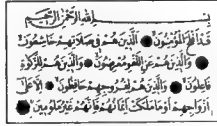 بسم الله الرحمن الرحيم
قد افلح المؤمنون الذين هم في صلاتهم خاشعون
والذين هم عن اللغو معرضون والذين هم للزكوة
فاعلون والذين هم لفروجهم حافظون الا على
ازواجهم او ما ملكت ايمانهم فانهم غير ملومين